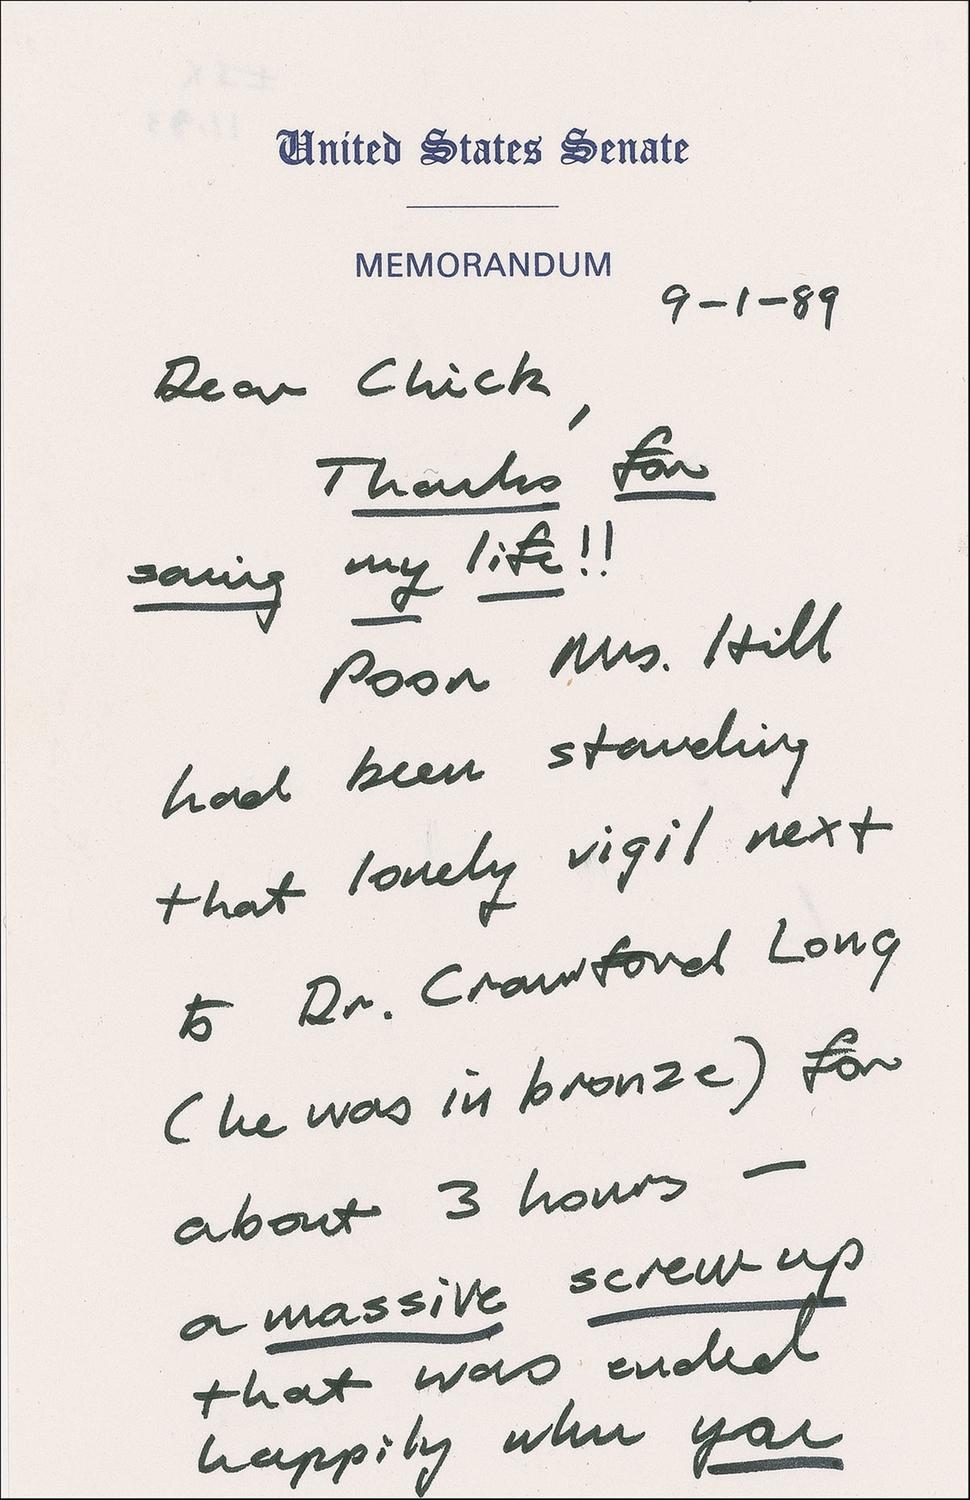 United States Senate
MEMORANDUM
9-1-89
Dear Chick,
Thanks for
saving my life!!
Poor Mrs. Hill
had been standing
that lonely vigil next
to Dr. Crawford Long
(he was in bronze) for
about 3 hours —
a massive screw up
that was ended
happily when you